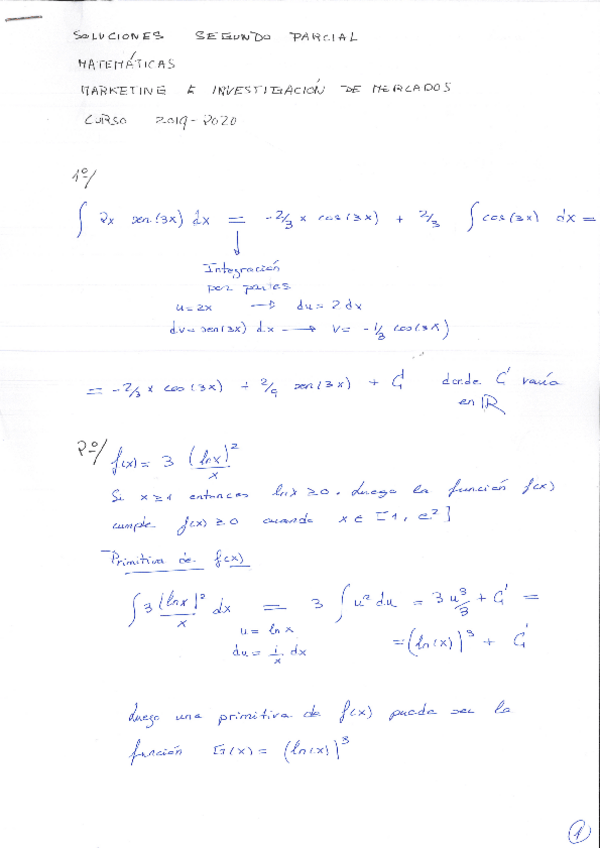 SOLUCIONES SEGUNDO PARCIAL
MATEMÁTICAS
MARKETING E INVESTIGACIÓN DE MERCADOS
CURSO 2019-2020
1º/
∫ 2x sen(3x) dx = -2/3 x cos(3x) + 2/3 ∫ cos(3x) dx =
Integración
por partes
u=2x → du=2dx
dv=sen(3x) dx → v=-1/3 cos(3x)
= -2/3 x cos(3x) + 2/9 sen(3x) + C donde C varía
en ℝ
2º/ f(x) = 3 (lnx)²/x
Si x≥1 entonces lnx≥0. Luego la función f(x)
cumple f(x)≥0 cuando x∈[1, e²]
Primitiva de f(x)
∫ 3 (lnx)²/x dx = 3 ∫ u² du = 3 u³/3 + C =
u = lnx
du = 1/x dx
= (ln(x))³ + C
Luego una primitiva de f(x) puede ser la
función G(x) = (ln(x))³
1